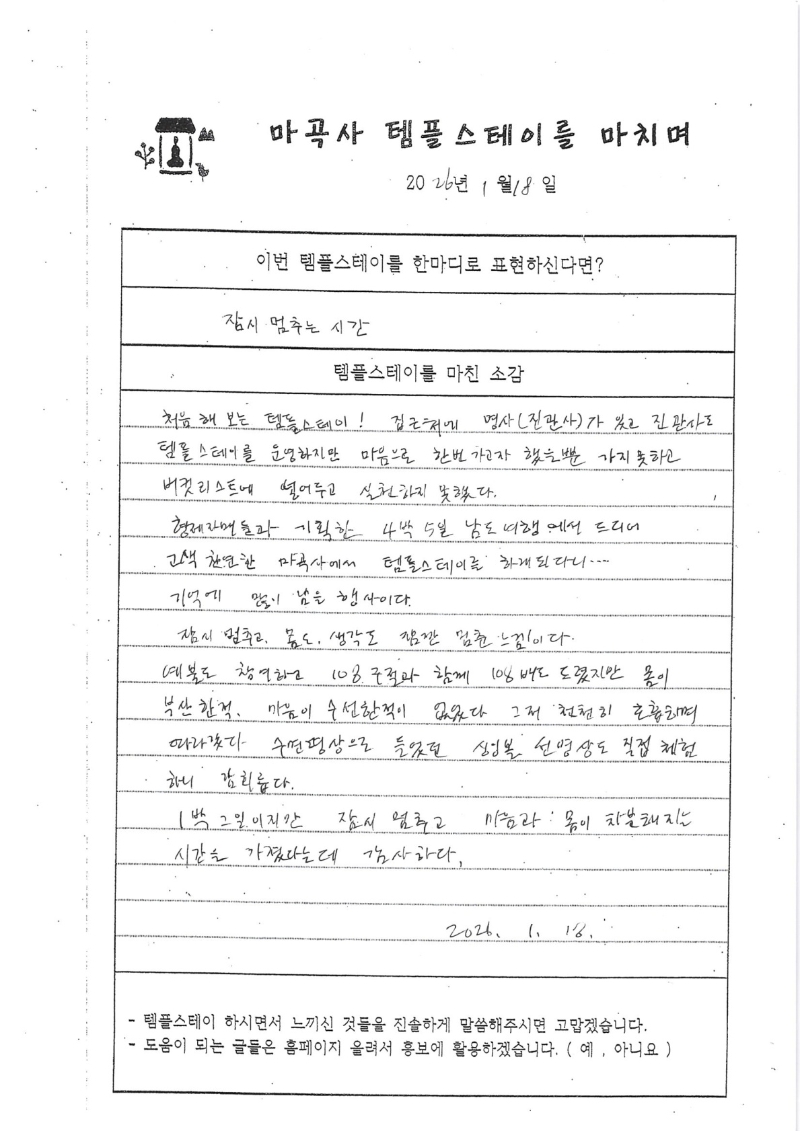 마곡사 템플스테이를 마치며
2026년 1월 18일
이번 템플스테이를 한마디로 표현하신다면?
잠시 멈추는 시간
템플스테이를 마친 소감
처음 해 보는 템플스테이! 집근처에 명사(진관사)가 있고 진관사도
템플스테이를 운영하지만 마음으로 한번 가고자 했을뿐 가지 못하고
버킷리스트에 넣어두고 실천하지 못했다.
형제자매들과 기획한 4박 5일 남도여행에선 드디어
고색 찬연한 마곡사에서 템플스테이를 하게 된다니....
기억에 많이 남을 행사이다.
잠시 멈추고, 몸도, 생각도 잠깐 멈춘 느낌이다.
예불도 참여하고 108 구절과 함께 108배도 드렸지만 몸이
부산한적, 마음이 수선한적이 없었다 그저 천천히 호흡하며
따라갔다 수면명상으로 들었던 선명상도 직접 체험
하니 감회롭다.
1박 2일이지만 잠시 멈추고 마음과 몸이 차분해지는
시간을 가졌다는데 감사하다.
2026. 1. 18.
- 템플스테이 하시면서 느끼신 것들을 진솔하게 말씀해주시면 고맙겠습니다.
- 도움이 되는 글들은 홈페이지 올려서 홍보에 활용하겠습니다. ( 예 , 아니요 )